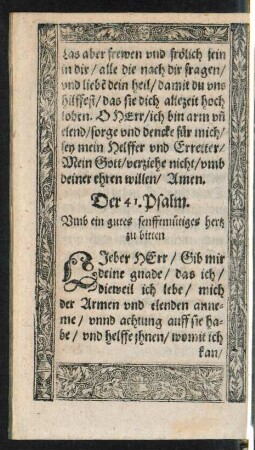 Las aber frewen vnd frölich sein
in dir / alle die nach dir fragen /
vnd liebē dein heil / damit du vns
hilffest / das sie dich allezeit hoch
loben. O HErr / ich bin arm vñ
elend / sorge vnd dencke für mich /
sey mein Helffer vnd Erretter /
Mein Gott / verziehe nicht / vmb
deiner ehren willen / Amen.
Der 41. Psalm.
Vmb ein gutes senfftmütiges hertz
zu bitten
LIeber HErr / Gib mir
deine gnade / das ich /
dieweil ich lebe / mich
der Armen vnd elenden anne-
me / vnnd achtung auff sie ha-
be / vnd helffe jhnen / womit ich
kan /